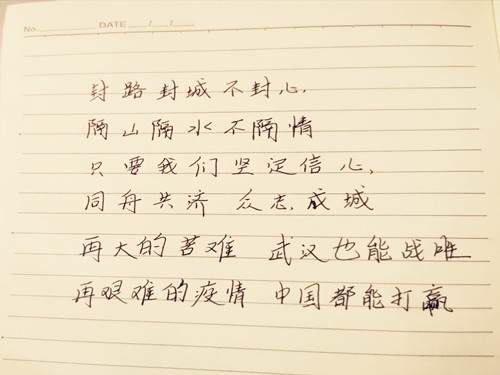 No. DATE / /
封路封城不封心.
隔山隔水不隔情
只要我们坚定信心,
同舟共济 众志成城
再大的苦难 武汉也能战胜
再艰难的疫情 中国都能打赢